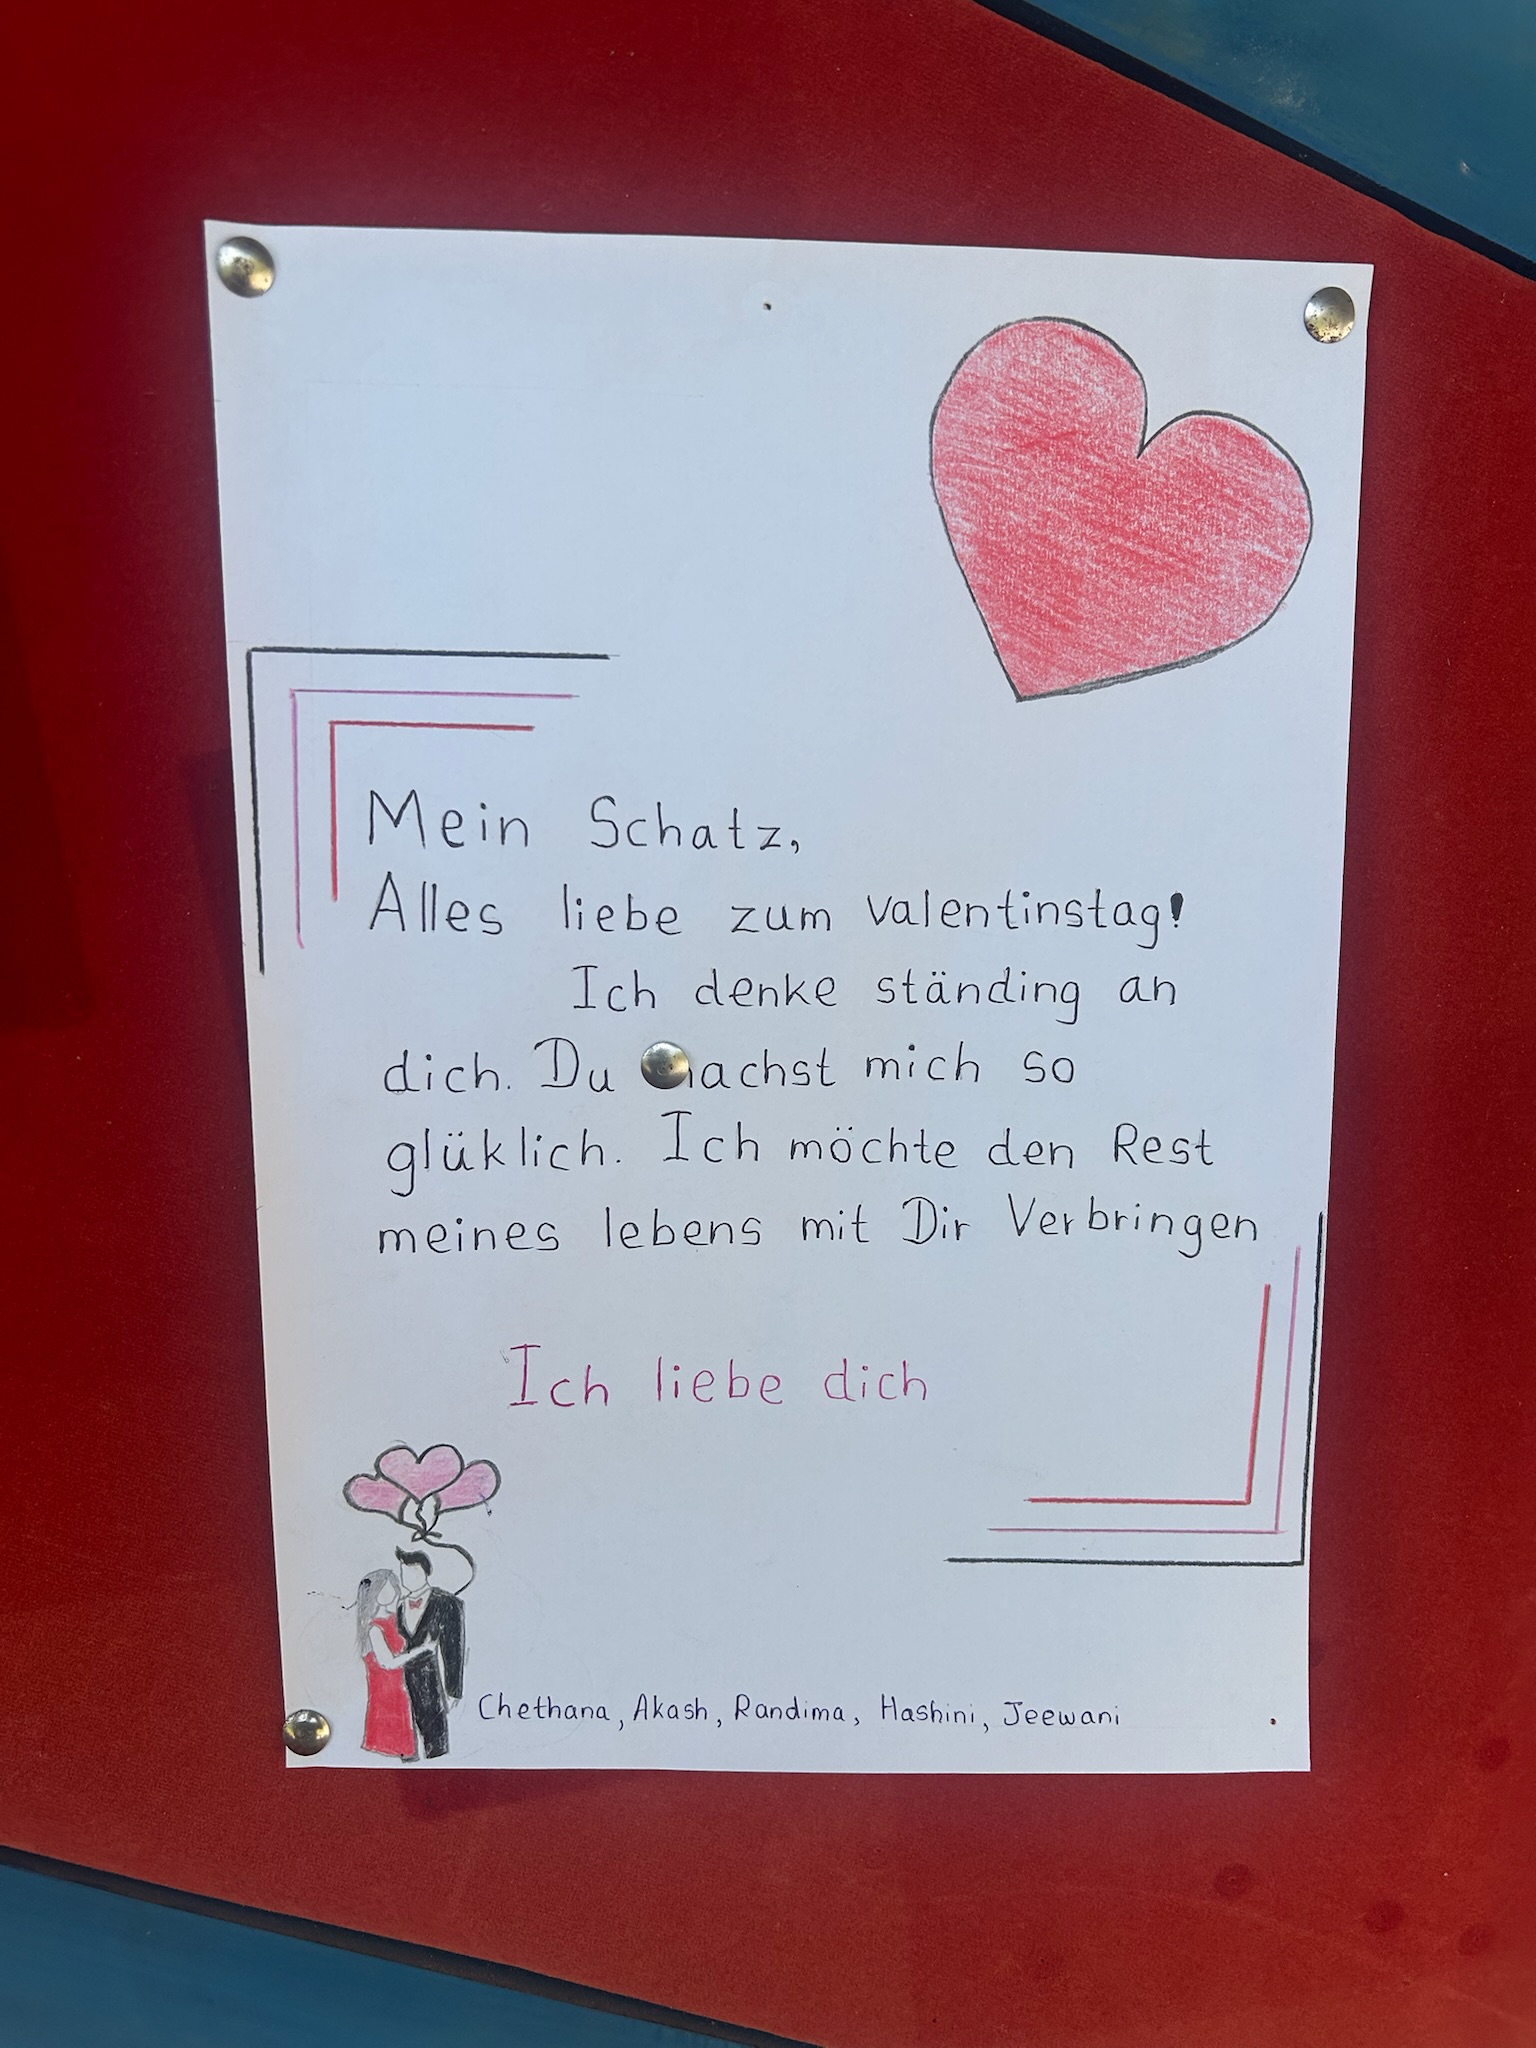 Mein Schatz,
Alles liebe zum valentinstag!
Ich denke ständing an
dich. Du machst mich so
glüklich. Ich möchte den Rest
meines lebens mit Dir Verbringen
Ich liebe dich
Chethana, Akash, Randima, Hashini, Jeewani